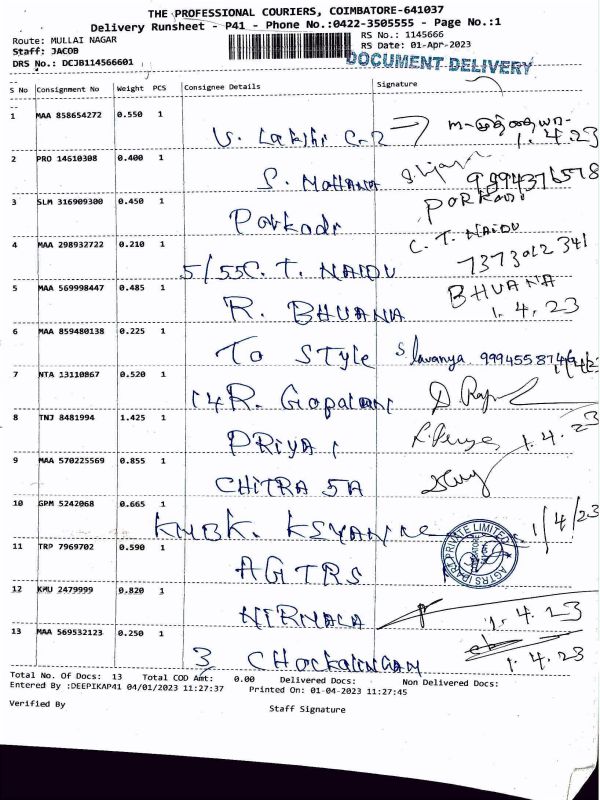 THE PROFESSIONAL COURIERS, COIMBATORE-641037
Delivery Runsheet - P41 - Phone No.:0422-3505555 - Page No.:1
Route: MULLAI NAGAR
RS No.: 1145666
Staff: JACOB
RS Date: 01-Apr-2023
DRS No.: DCJB114566601
DOCUMENT DELIVERY
S No Consignment No Weight PCS Consignee Details Signature
1 MAA 858654272 0.550 1
1.4.23
2 PRO 14610308 0.400 1
S. MOHANA 9994376578
3 SLM 316909300 0.450 1
Porkodi PORKODI
4 MAA 298932722 0.210 1 C. T. NAIDU
5/55 C. T. NAIDU 7373012341
5 MAA 569998447 0.485 1 BHUANA
R. BHUANA 1.4.23
6 MAA 859480138 0.225 1
To Style S. lavanya
7 NTA 13110867 0.520 1
14 R. Gopalan
8 TNJ 8481994 1.425 1
PRIYA 1 1.4.23
9 MAA 570225569 0.855 1
CHITRA 5A
10 GPM 5242068 0.665 1 1/4/23
11 TRP 7969702 0.590 1
AGTRS
AGTRS PRIVATE LIMITED
12 KMU 2479999 0.820 1
NIRMALA 1.4.23
13 MAA 569532123 0.250 1
3 CHockalingam 1.4.23
Total No. Of Docs: 13 Total COD Amt: 0.00 Delivered Docs: Non Delivered Docs:
Entered By :DEEPIKAP41 04/01/2023 11:27:37 Printed On: 01-04-2023 11:27:45
Verified By
Staff Signature